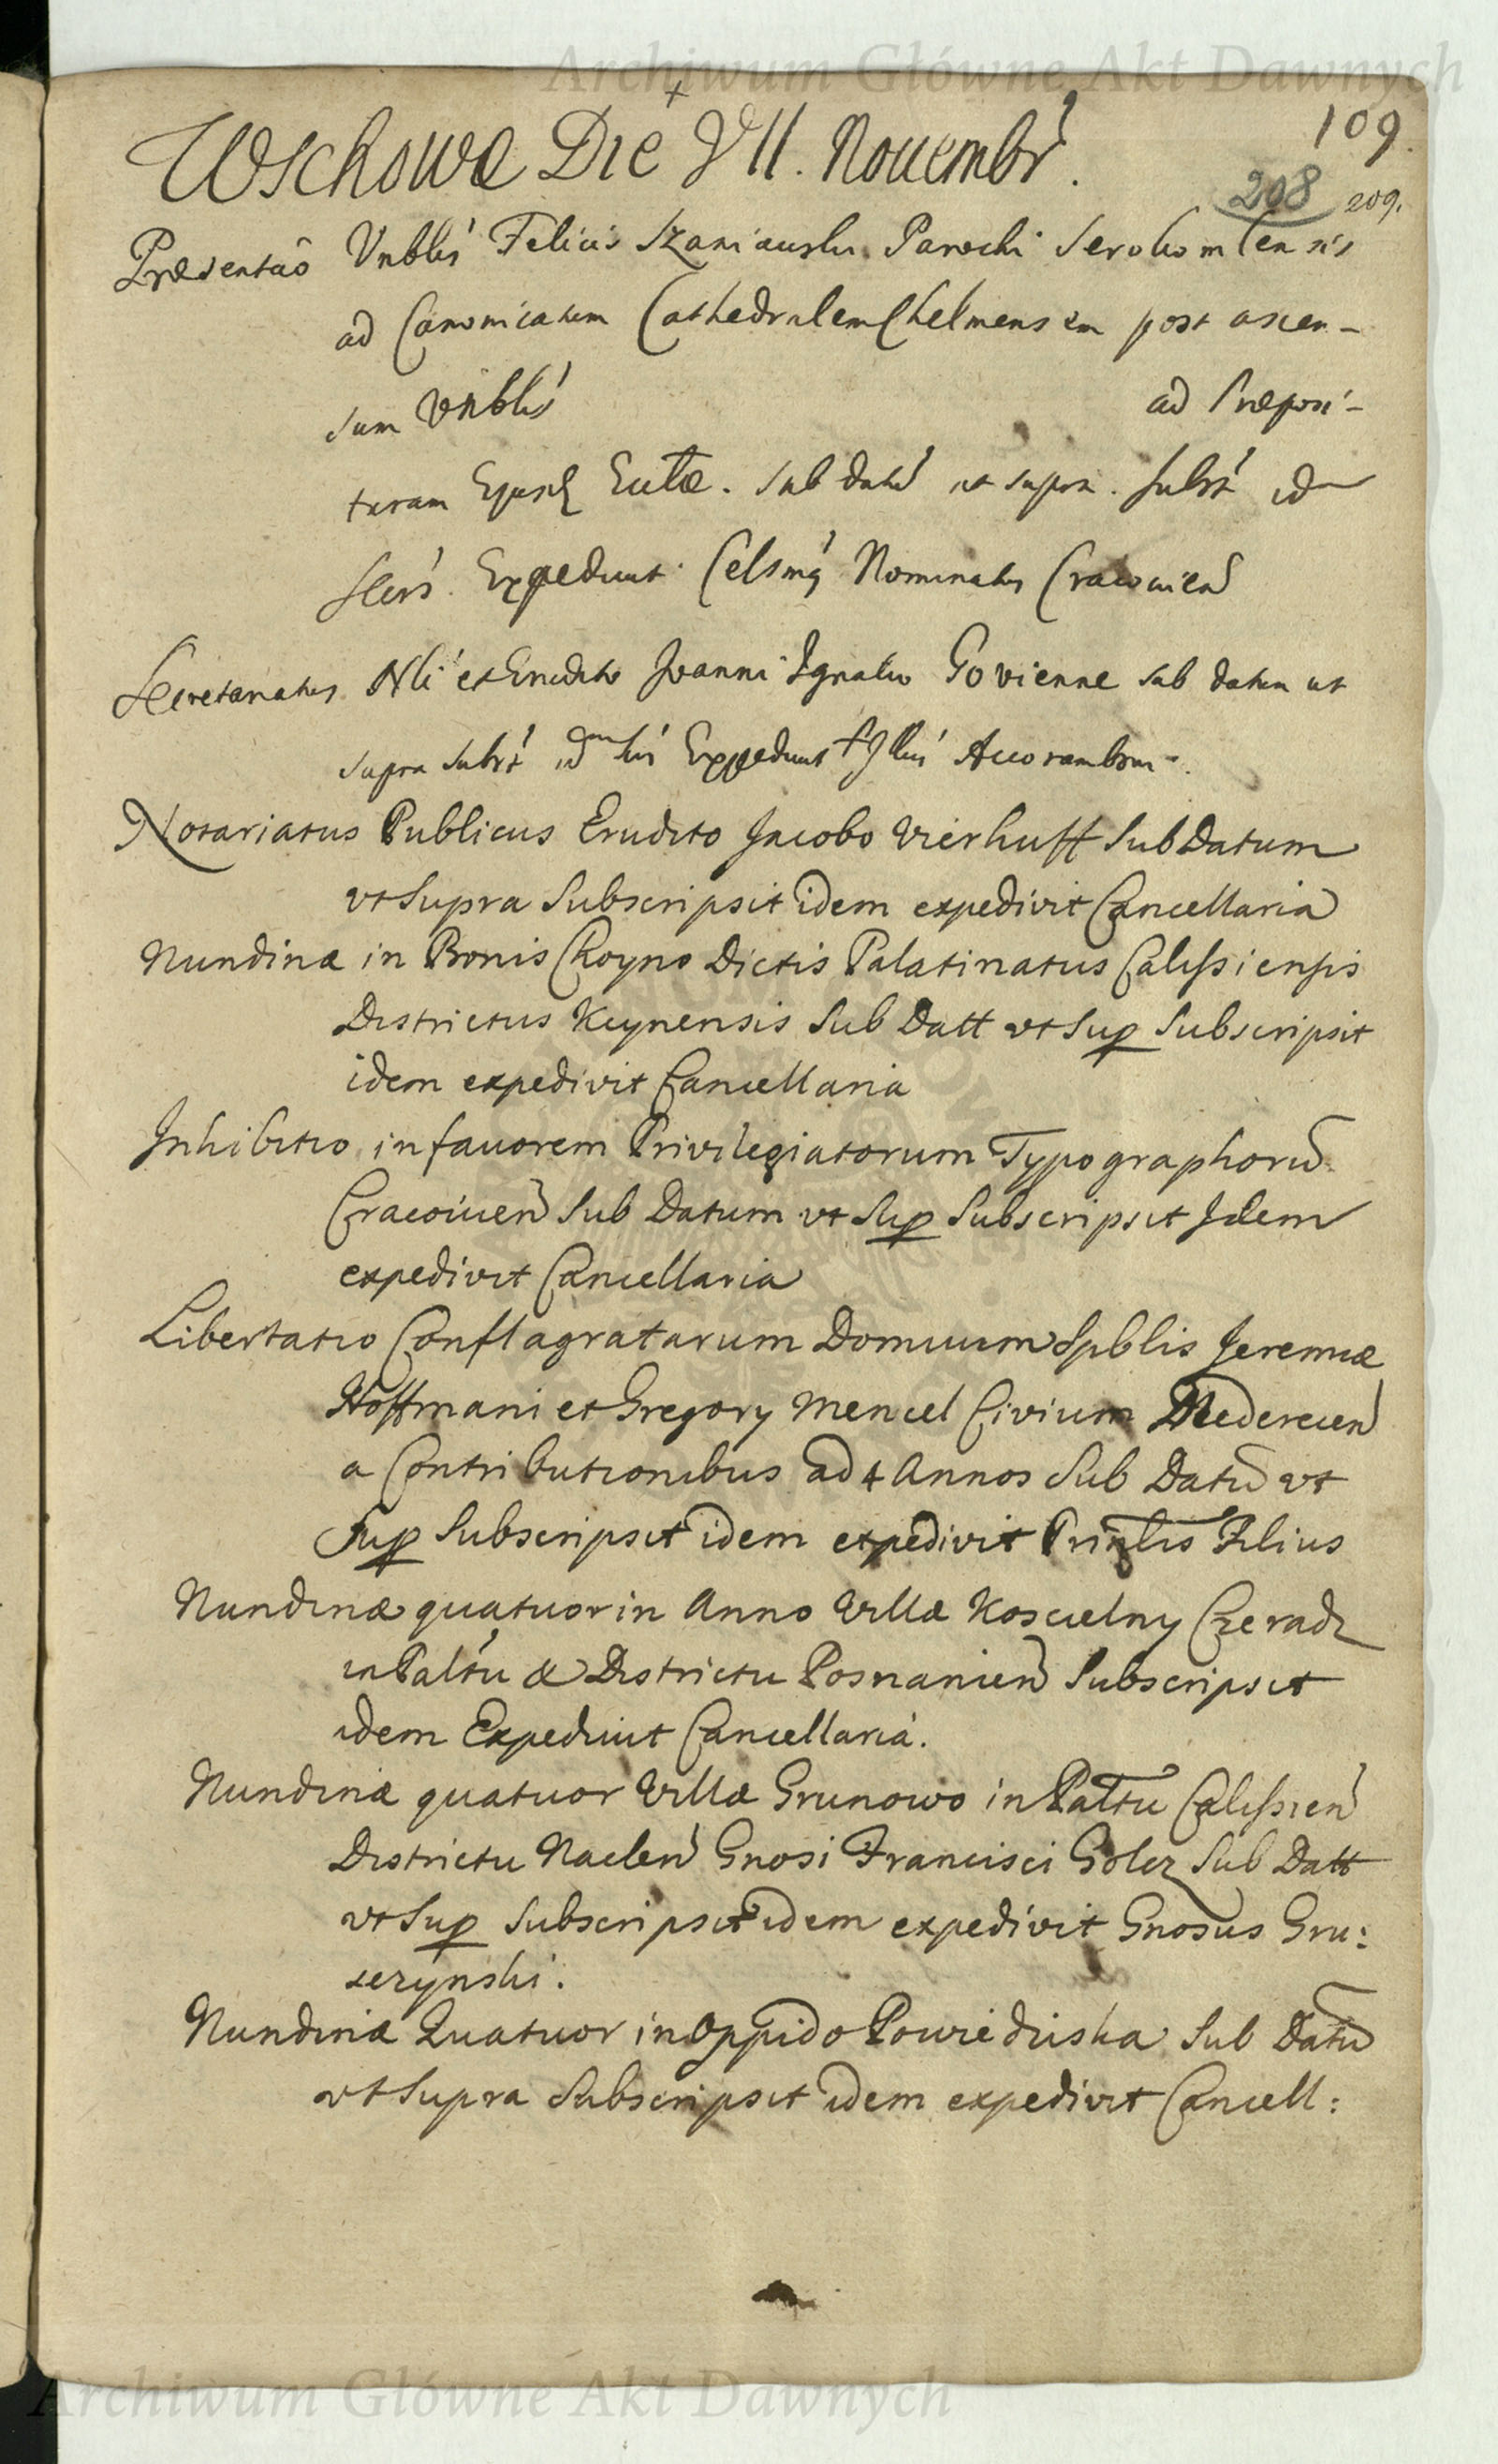 Archiwum Główne Akt Dawnych
109.
Wschowæ Die VII. Novembr.
208 209.
Præsentao Vnblis Felicis Szaniawski Parochi Serokomlensis
ad Canonicatum Cathedralem Chelmensem post ascen-
sum Vnblis ad Præposi-
turam Ejusd Eccltæ. Sub dato ut supra. Subst idem
Secrs. Expeduit Celsmg Nominatus Cracovien
Secretariatus Nli et Erudito Joanni Ignatio Govienne sub datum ut
supra subst idem Expeduit Illus Accoramboni.
Notariatus Publicus Erudito Jacobo Vierhuff Sub Datum
vt Supra Subscripsit idem expedivit Cancellaria
Nundinæ in Bonis Choyno Dictis Palatinatus Calissiensis
Districtus Kcynensis Sub Datt vt Sup Subscripsit
idem expedivit Cancellaria
Inhibitio in favorem Privilegiatorum Typographorū
Cracovien Sub Datum vt Sup Subscripsit Idem
expedivit Cancellaria
Libertatio Conflagratarum Domuum Spblis Jeremiæ
Hoffmani et Gregory Mencel Civium Medercien
a Contributionibus ad 4 Annos Sub Datū vt
Sup Subscripsit idem expedivit Filius
Nundinæ quatuor in Anno Villæ Koscielny Czeradz
in Paltu & Districtu Posnanien Subscripsit
idem Expeduit Cancellaria.
Nundinæ quatuor Villæ Grunowo in Paltu Calissien
Districtu Naclen Gnosi Francisci Golcz Sub Datt
vt Sup Subscripsit idem expedivit Gnosus Gru:
serzynski.
Nundinæ Quatuor in Oppido Powiedziska Sub Datū
vt Supra Subscripsit idem expedivit Cancell:
Archiwum Główne Akt Dawnych